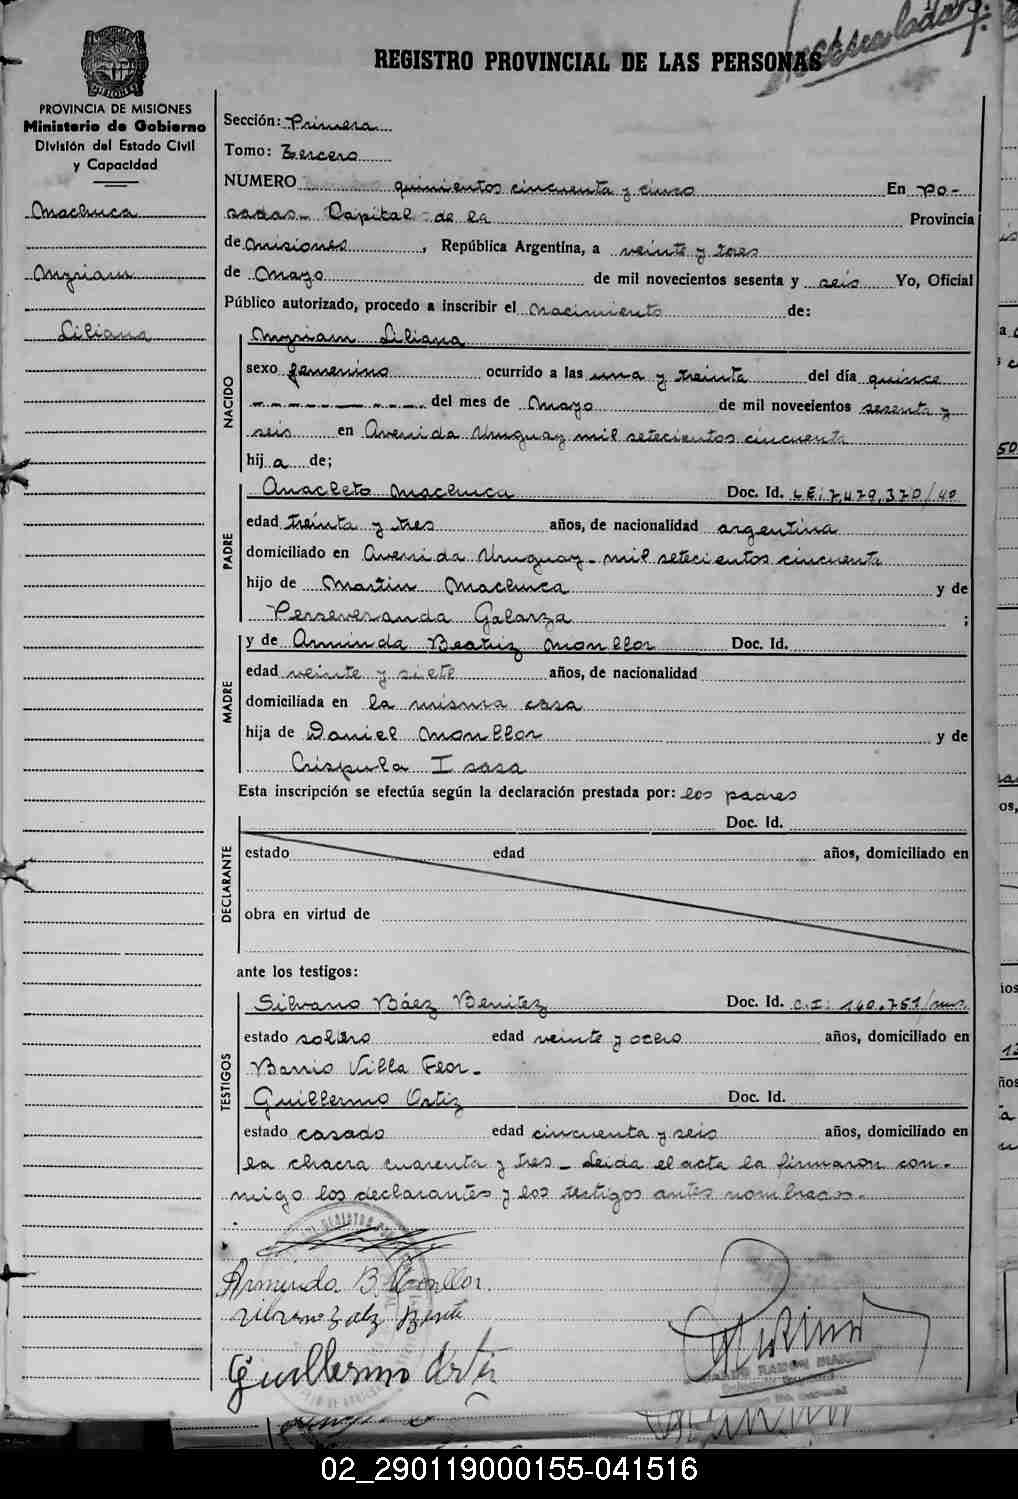 REGISTRO PROVINCIAL DE LAS PERSONAS
PROVINCIA DE MISIONES
Ministerio de Gobierno
División del Estado Civil
y Capacidad
Machuca
Myriam
Liliana
Sección: Primera
Tomo: Tercero
NUMERO quinientos cincuenta y cinco En Po-
sadas - Capital - de la Provincia
de Misiones, República Argentina, a veinte y tres
de Mayo de mil novecientos sesenta y seis Yo, Oficial
Público autorizado, procedo a inscribir el nacimiento de:
NACIDO
Myriam Liliana
sexo femenino ocurrido a las una y treinta del día quince
del mes de Mayo de mil novecientos sesenta y
seis en Avenida Uruguay mil setecientos cincuenta
hij a de;
PADRE
Anacleto Machuca Doc. Id. L.E: 7.479.370/40
edad treinta y tres años, de nacionalidad argentina
domiciliado en Avenida Uruguay - mil setecientos cincuenta
hijo de Martin Machuca y de
Perseveranda Galarza ;
MADRE
y de Arminda Beatriz Monllor Doc. Id.
edad veinte y siete años, de nacionalidad
domiciliada en la misma casa
hija de Daniel Monllor y de
Crispula Isasa
Esta inscripción se efectúa según la declaración prestada por: los padres
DECLARANTE
Doc. Id.
estado edad años, domiciliado en
obra en virtud de
ante los testigos:
TESTIGOS
Silvano Báez Benitez Doc. Id. C.I: 140.751/mns.
estado soltero edad veinte y ocho años, domiciliado en
Barrio Villa Flor.-
Guillermo Ortiz Doc. Id.
estado casado edad cincuenta y seis años, domiciliado en
la chacra cuarenta y tres - Leida el acta la firmaron con-
migo los declarantes y los testigos antes nombrados.-
Arminda B. Monllor
Silvano Baez Benite
Guillermo Ortiz
02_290119000155-041516